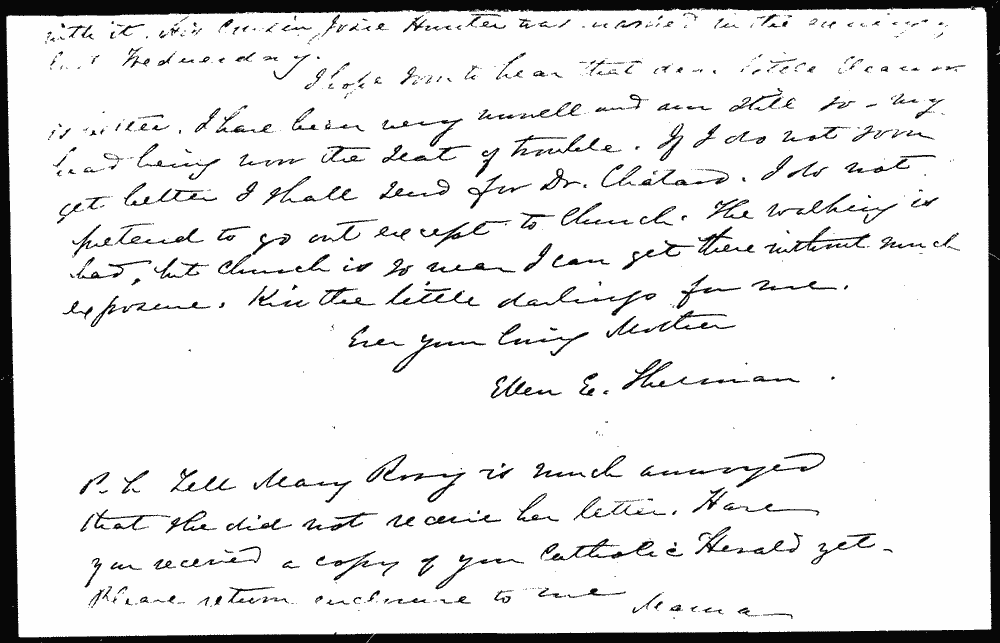 with it. His Cousin Josie Hunter was married in the evening
last Wednesday.
I hope soon to hear that dear little Eleanor
is better. I have been very unwell and am still so - my
head being now the seat of trouble. If I do not soon
get better I shall send for Dr. Chatard. I do not
pretend to go out except to Church. The walking is
bad, but church is so near I can get there without much
exposure. Kiss the little darlings for me.
Ever your loving Mother
Ellen E. Sherman.
P.S. Tell Mary Rosy is much annoyed
that she did not receive her letter. Have
you received a copy of your Catholic Herald yet -
Please return enclosure to me Mama